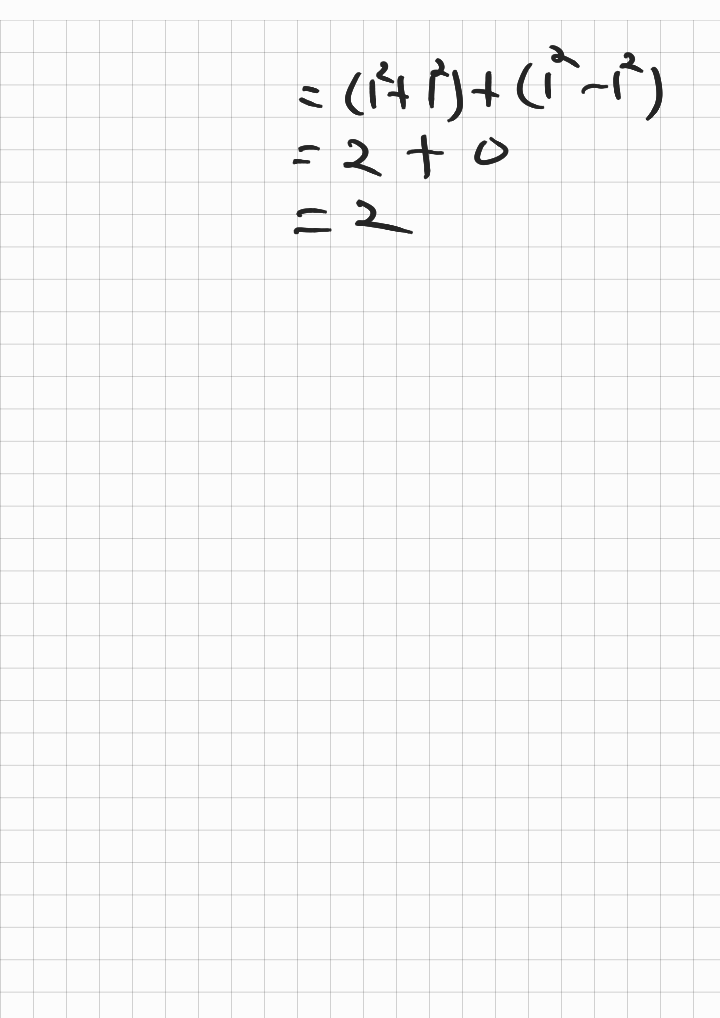 = (1²+ 1²) + (1² - 1²)
= 2 + 0
= 2